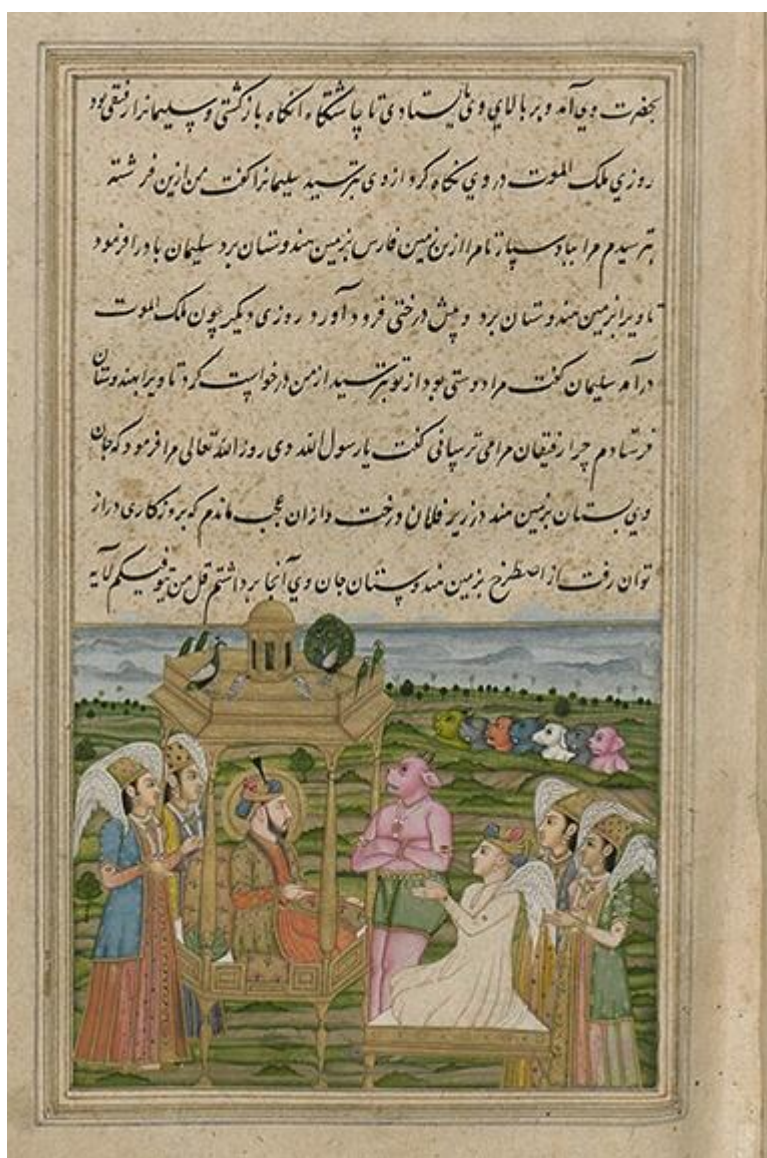 بحضرت وی آمد و بر بالای وی بایستادی تا چاشتگاه انگاه بازگشتی و سلیمانرا رفیقی بود
روزی ملک الموت در وی نگاه کرد از وی بترسید سلیمانرا گفت من ازین فرشته
بترسیدم مرا بباد سپار تا مرا ازین زمین فارس بزمین هندوستان برد سلیمان باد را فرمود
تا ویرا بزمین هندوستان برد و پیش درختی فرود آورد روزی دیگر چون ملک الموت
درآمد سلیمان گفت مرا دوستی بود از تو بترسید از من درخواست کرد تا ویرا بهندوستان
فرستادم چرا رفیقان مرا می ترسانی گفت یا رسول الله دی روز الله تعالی مرا فرمود که جان
وی بستان بزمین هند در زیر فلان درخت و ازان عجب ماندم که بروزکاری دراز
توان رفت از اصطرخ بزمین هندوستان جان وی آنجا برداشتم قل من یتوفیکم لآیه